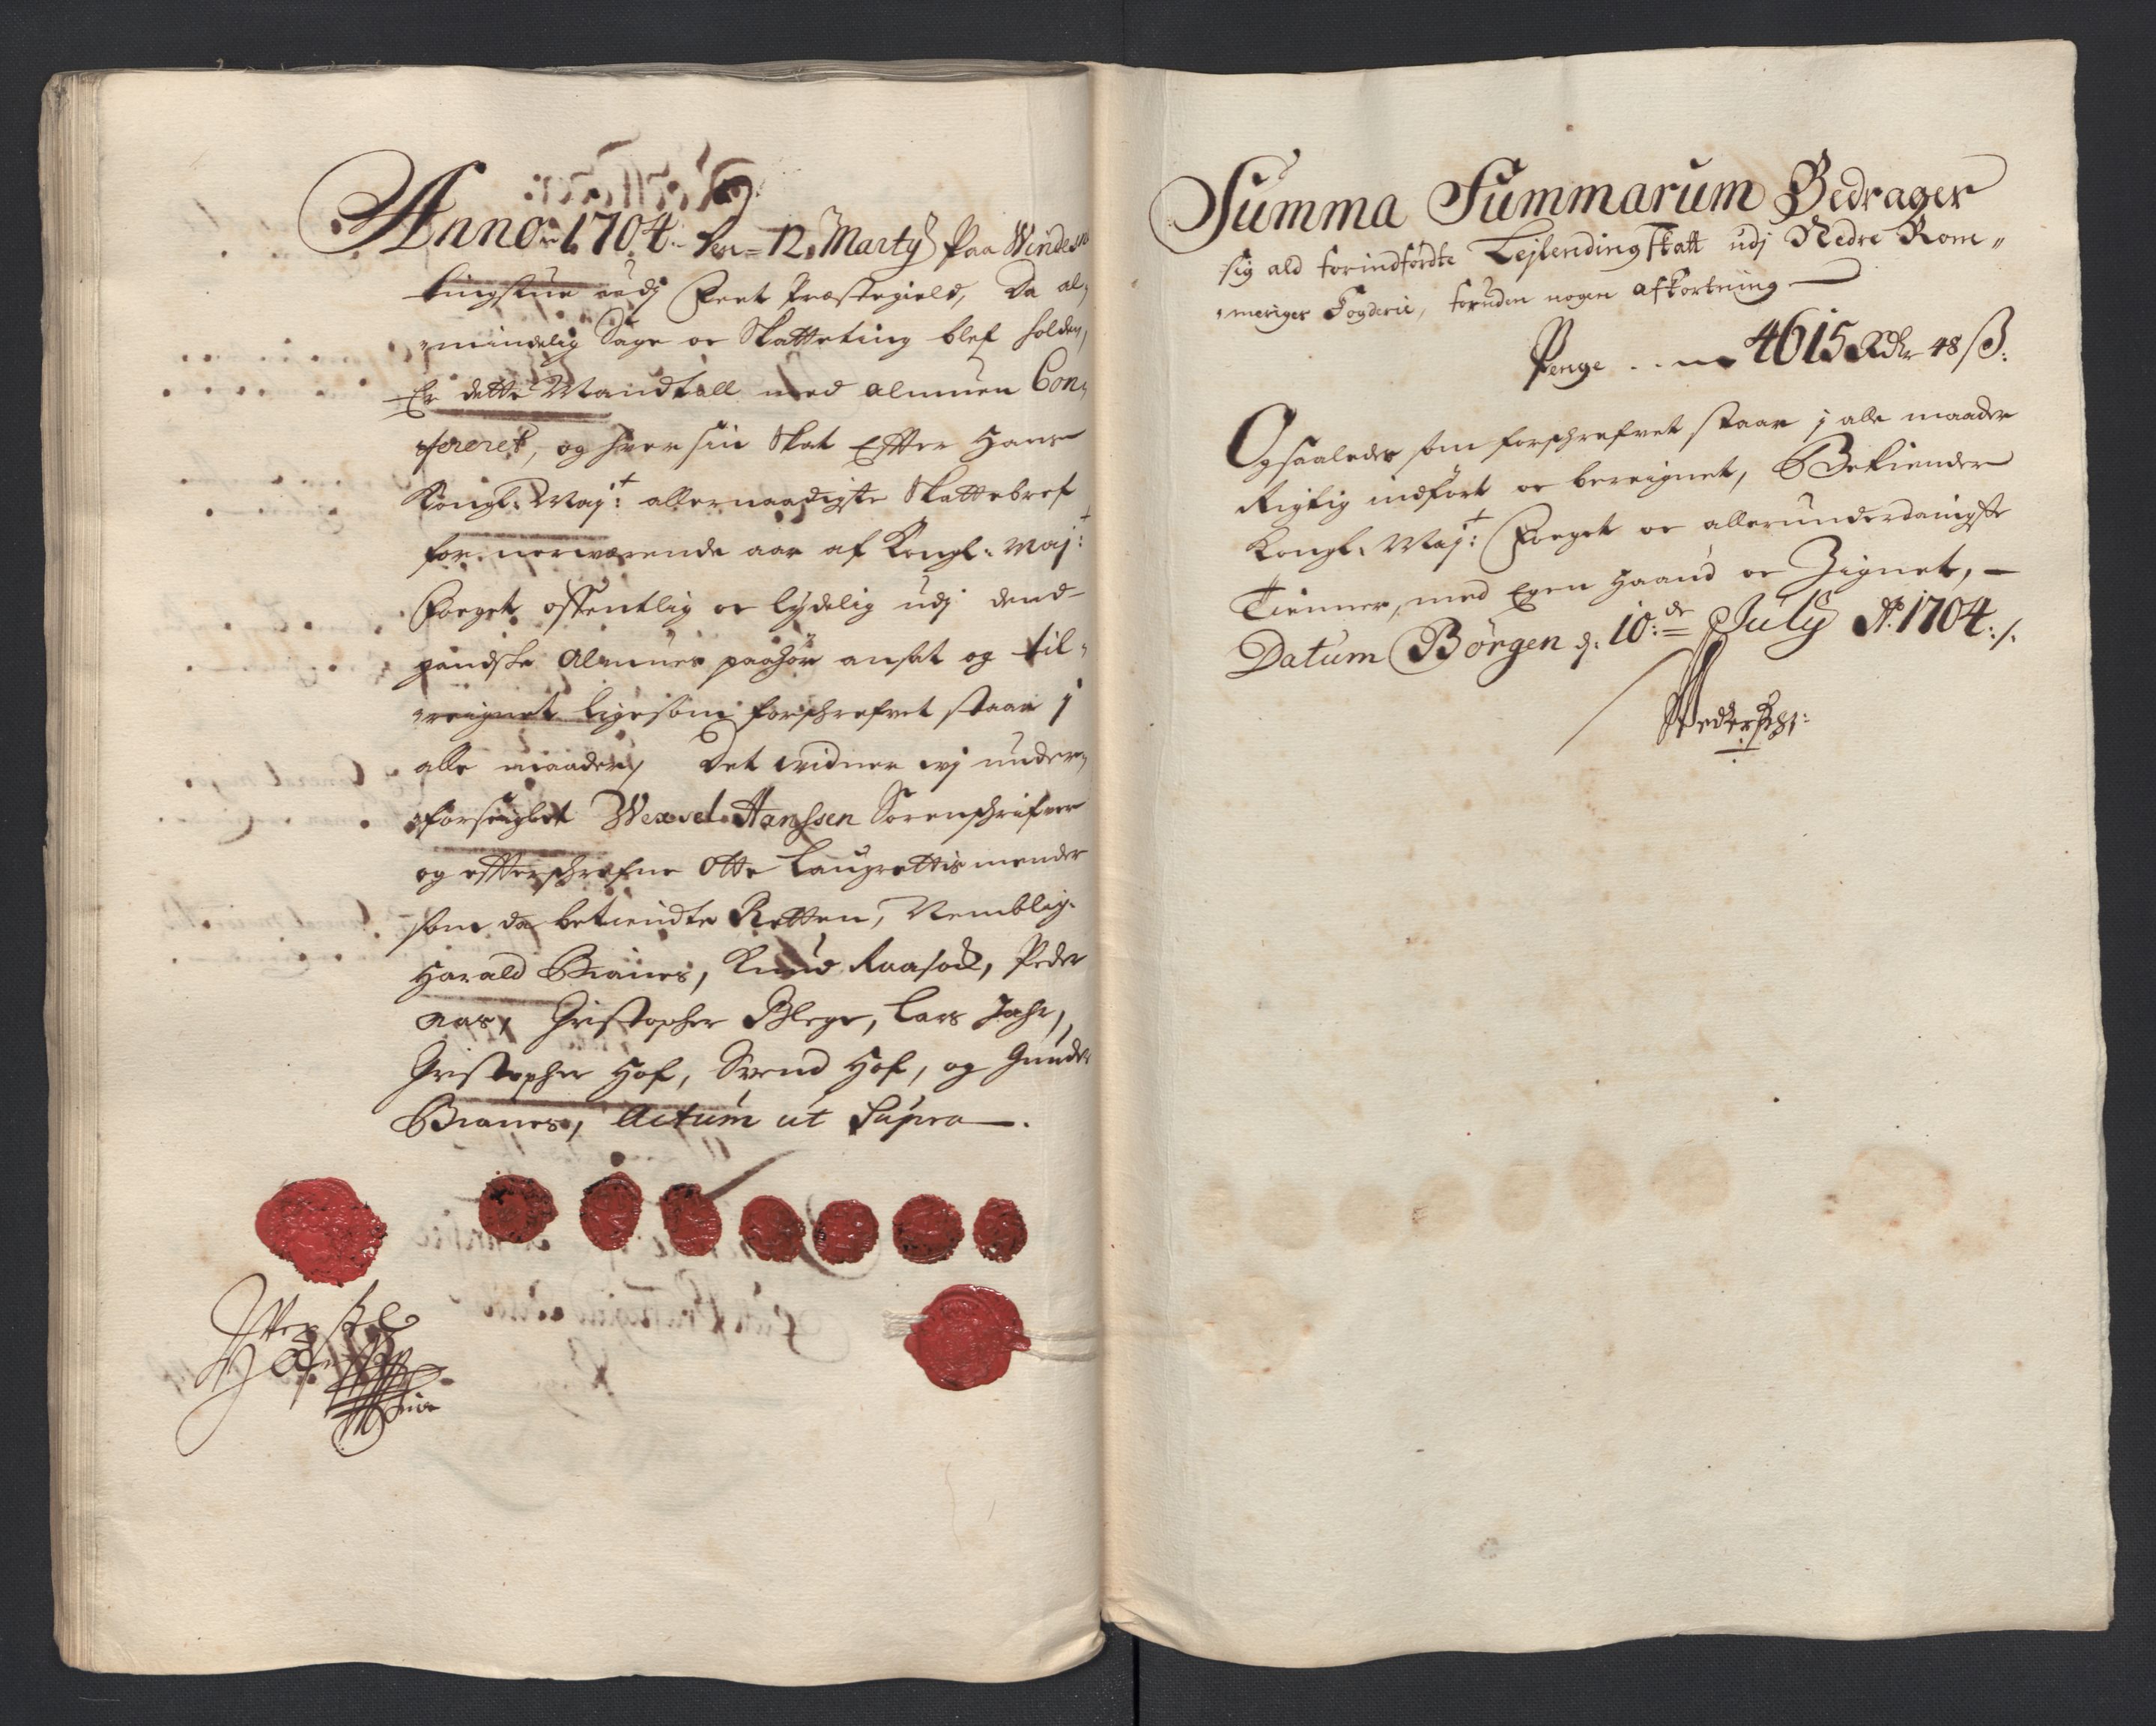 Anno 1704. den 12. Martÿ Paa Windesn
tingstue udj Feet Præstegield, Da al,
mindelig Sage oc Skatteting blef holden,
Er dette Mandtall med almuen Con,
fereret, og hver sin Skat Efter Hans
Kongl: Maj:t allernaadigste Skattebref
for nerværende aar af Kongl: Maj:t
Foeget offentlig oc lydelig udj dend
gandske Almues paahør ansat og til,
reignet ligesom forschrefvet staar i
alle maader, Det vidner vj under,
forseiglet Wexel Hanssen Sorenschrifver
og efterschrefne Otte Laugrettis mender
som da betiendte Retten, Nemblig.
Harald Bianes, Knud Raasock, Peder
Aas, Christopher Blege, Lars Jahr,
Christopher Hof, Svend Hof, og Gunder
Bianes, Actum ut Supra.
Summa Summarum Bedrager
sig ald forindførdte Lejlending skatt udj Nedre Rom,,
meriges Fogderie, foruden nogen afkortning
Penge . . 4615 Rdr 48 ß:
Og saaledes som forschrefvet staar j alle maader
Rigtig indført oc bereignet, Bekiender
Kongl: Maj:t Foeget oc allerunderdanigste
Tienner, med Egen Haand oc Zignet,
Datum Børgen d: 10:de July Ao. 1704:/.